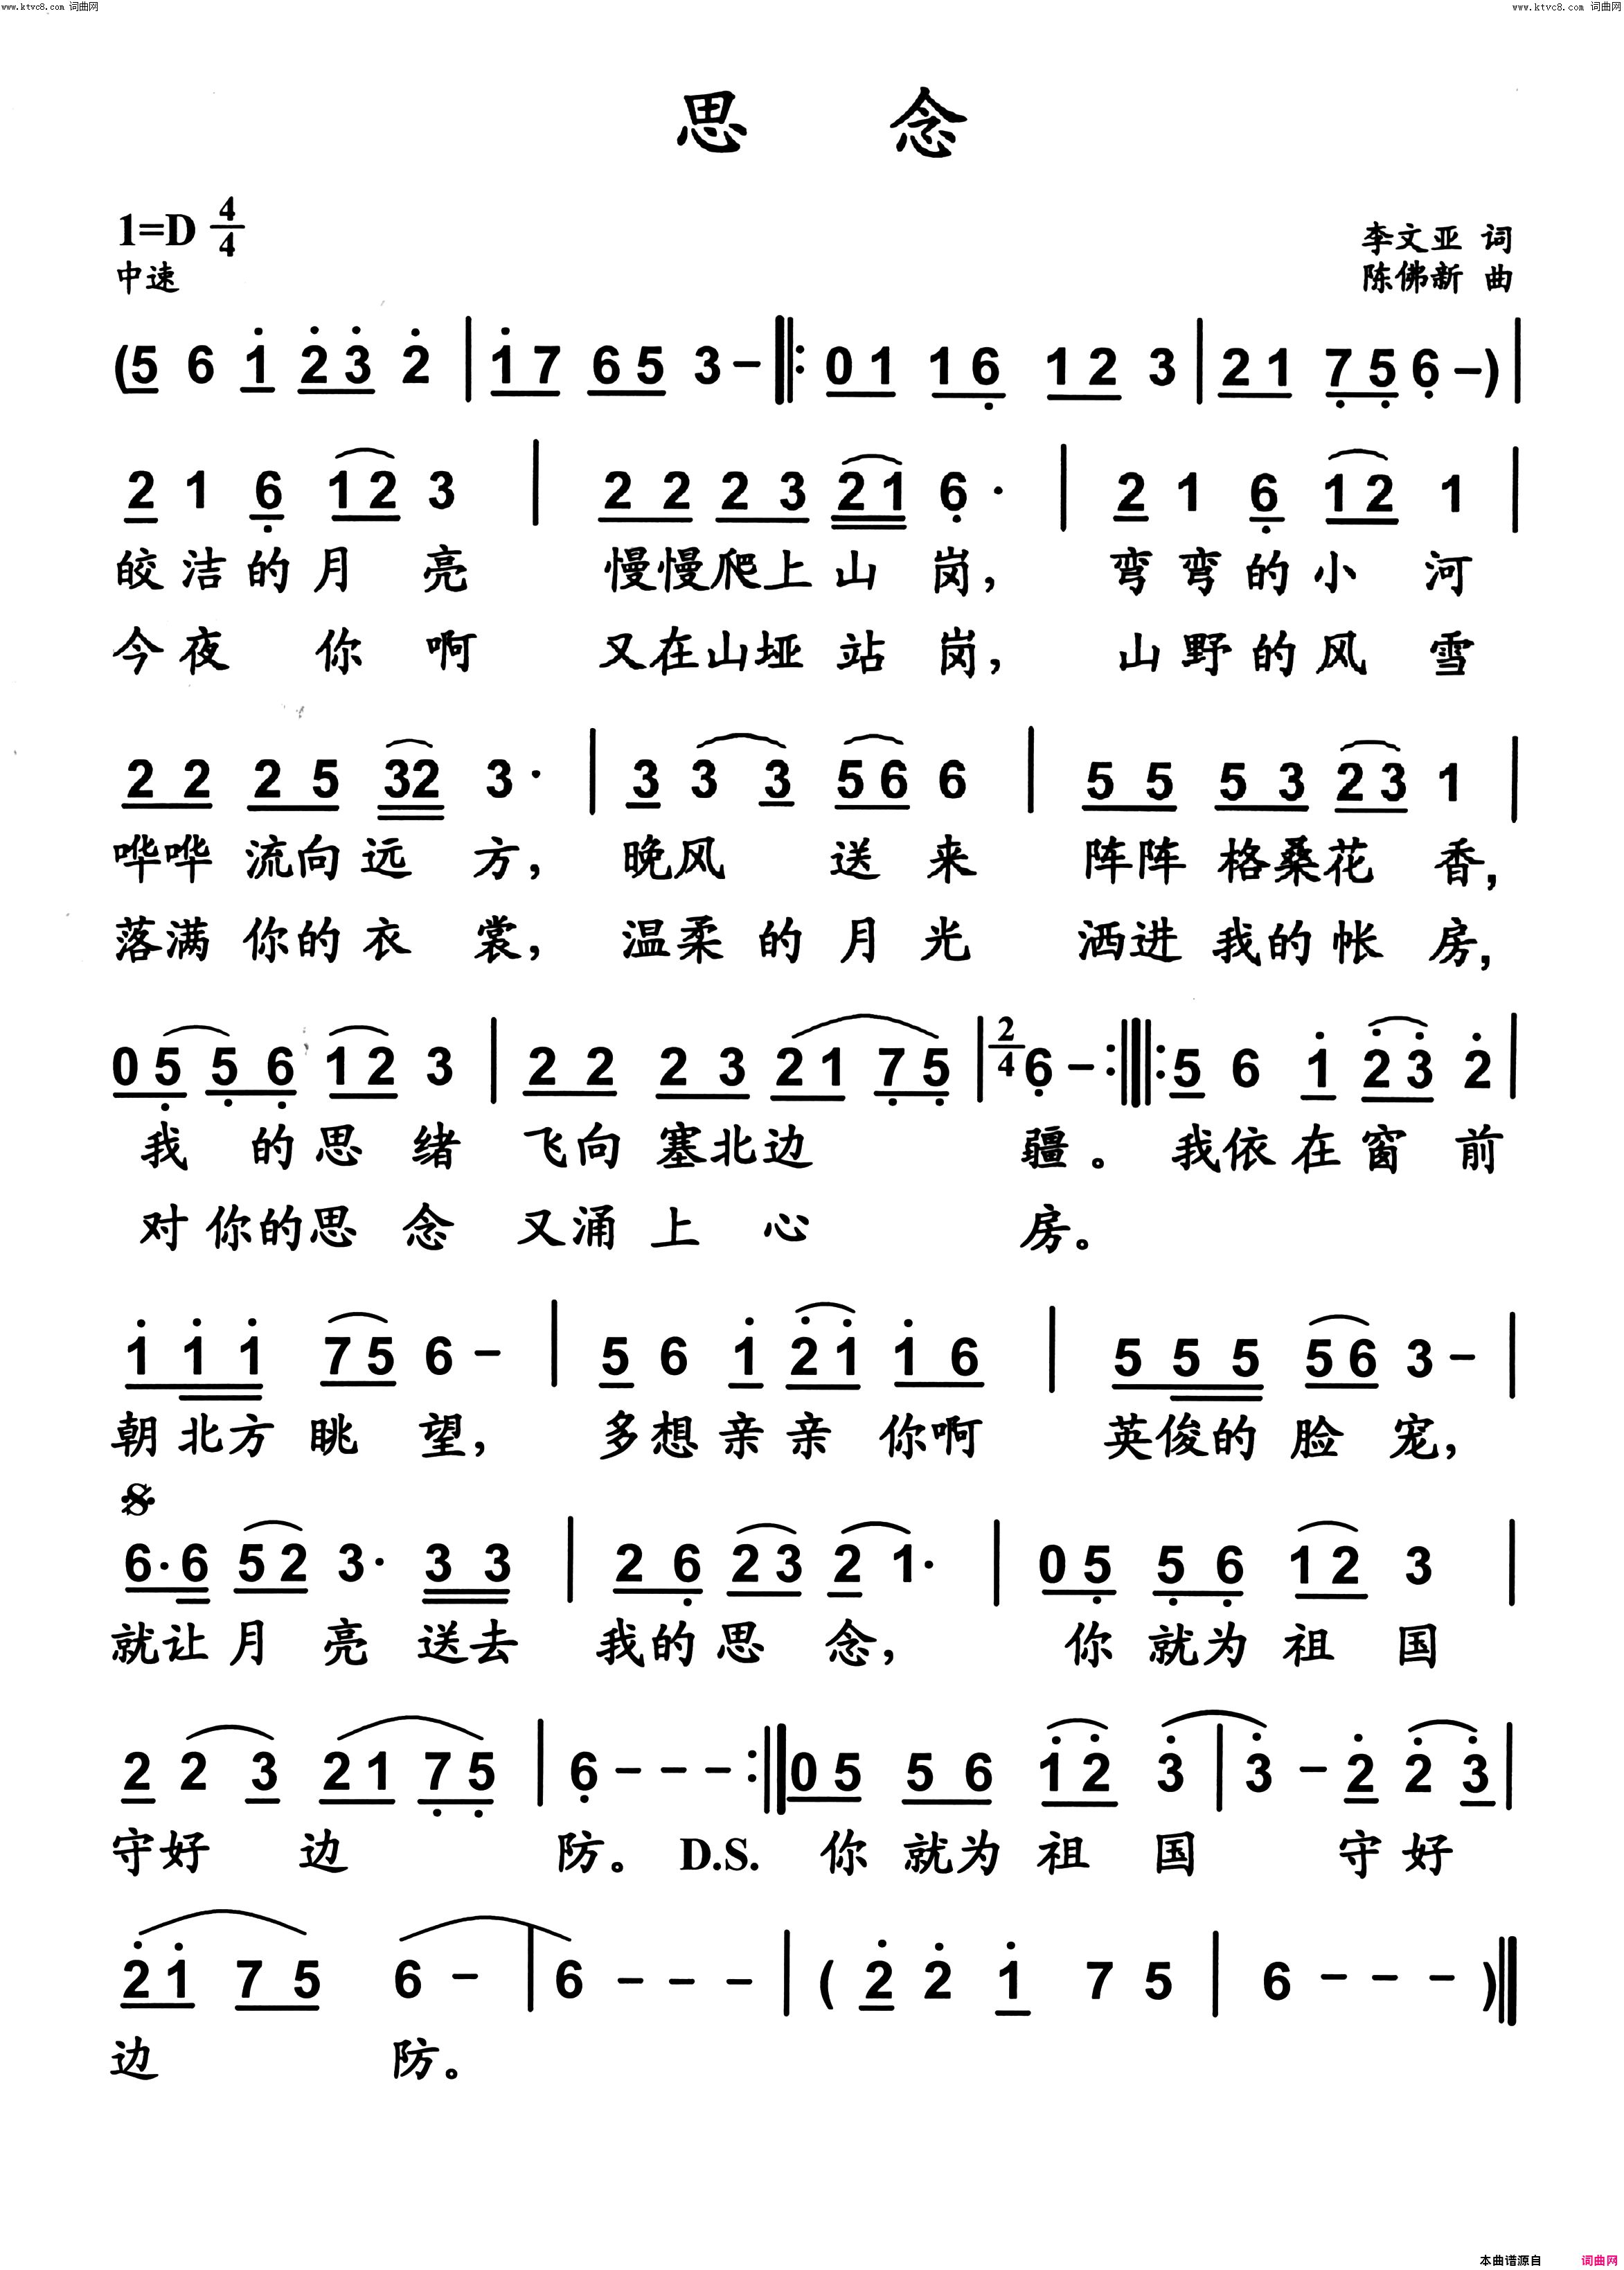 www.ktvc8.com 词曲网 www.ktvc8.com 词曲网
思 念
1=D 4/4
李文亚 词
中速 陈佛新 曲
(5 6 1 2 3 2 | 1 7 6 5 3 - ‖: 0 1 1 6 1 2 3 | 2 1 7 5 6 - ) |
2 1 6 1 2 3 | 2 2 2 3 2 1 6 · | 2 1 6 1 2 1 |
皎洁的月 亮 慢慢爬上山 岗， 弯弯的小 河
今夜 你 啊 又在山垭站 岗， 山野的风 雪
2 2 2 5 3 2 3 · | 3 3 3 5 6 6 | 5 5 5 3 2 3 1 |
哗哗 流向远 方， 晚风 送 来 阵阵 格桑花 香，
落满 你的衣 裳， 温柔的月 光 洒进 我的帐 房，
0 5 5 6 1 2 3 | 2 2 2 3 2 1 7 5 | 2/4 6 - :‖: 5 6 1 2 3 2 |
我 的思 绪 飞向 塞北边 疆。 我依在窗 前
对你的思 念 又涌 上 心 房。
1 1 1 7 5 6 - | 5 6 1 2 1 1 6 | 5 5 5 5 6 3 - |
朝北方眺 望， 多想亲亲 你啊 英俊的脸 宠，
𝄋
6 · 6 5 2 3 · 3 3 | 2 6 2 3 2 1 · | 0 5 5 6 1 2 3 |
就让月 亮 送去 我的思 念， 你 就为祖 国
2 2 3 2 1 7 5 | 6 - - - :‖ 0 5 5 6 1 2 3 | 3 - 2 2 3 |
守好 边 防。 D.S. 你 就为祖 国 守好
2 1 7 5 6 - | 6 - - - | ( 2 2 1 7 5 | 6 - - - ) ‖
边 防。
本曲谱源自 词曲网